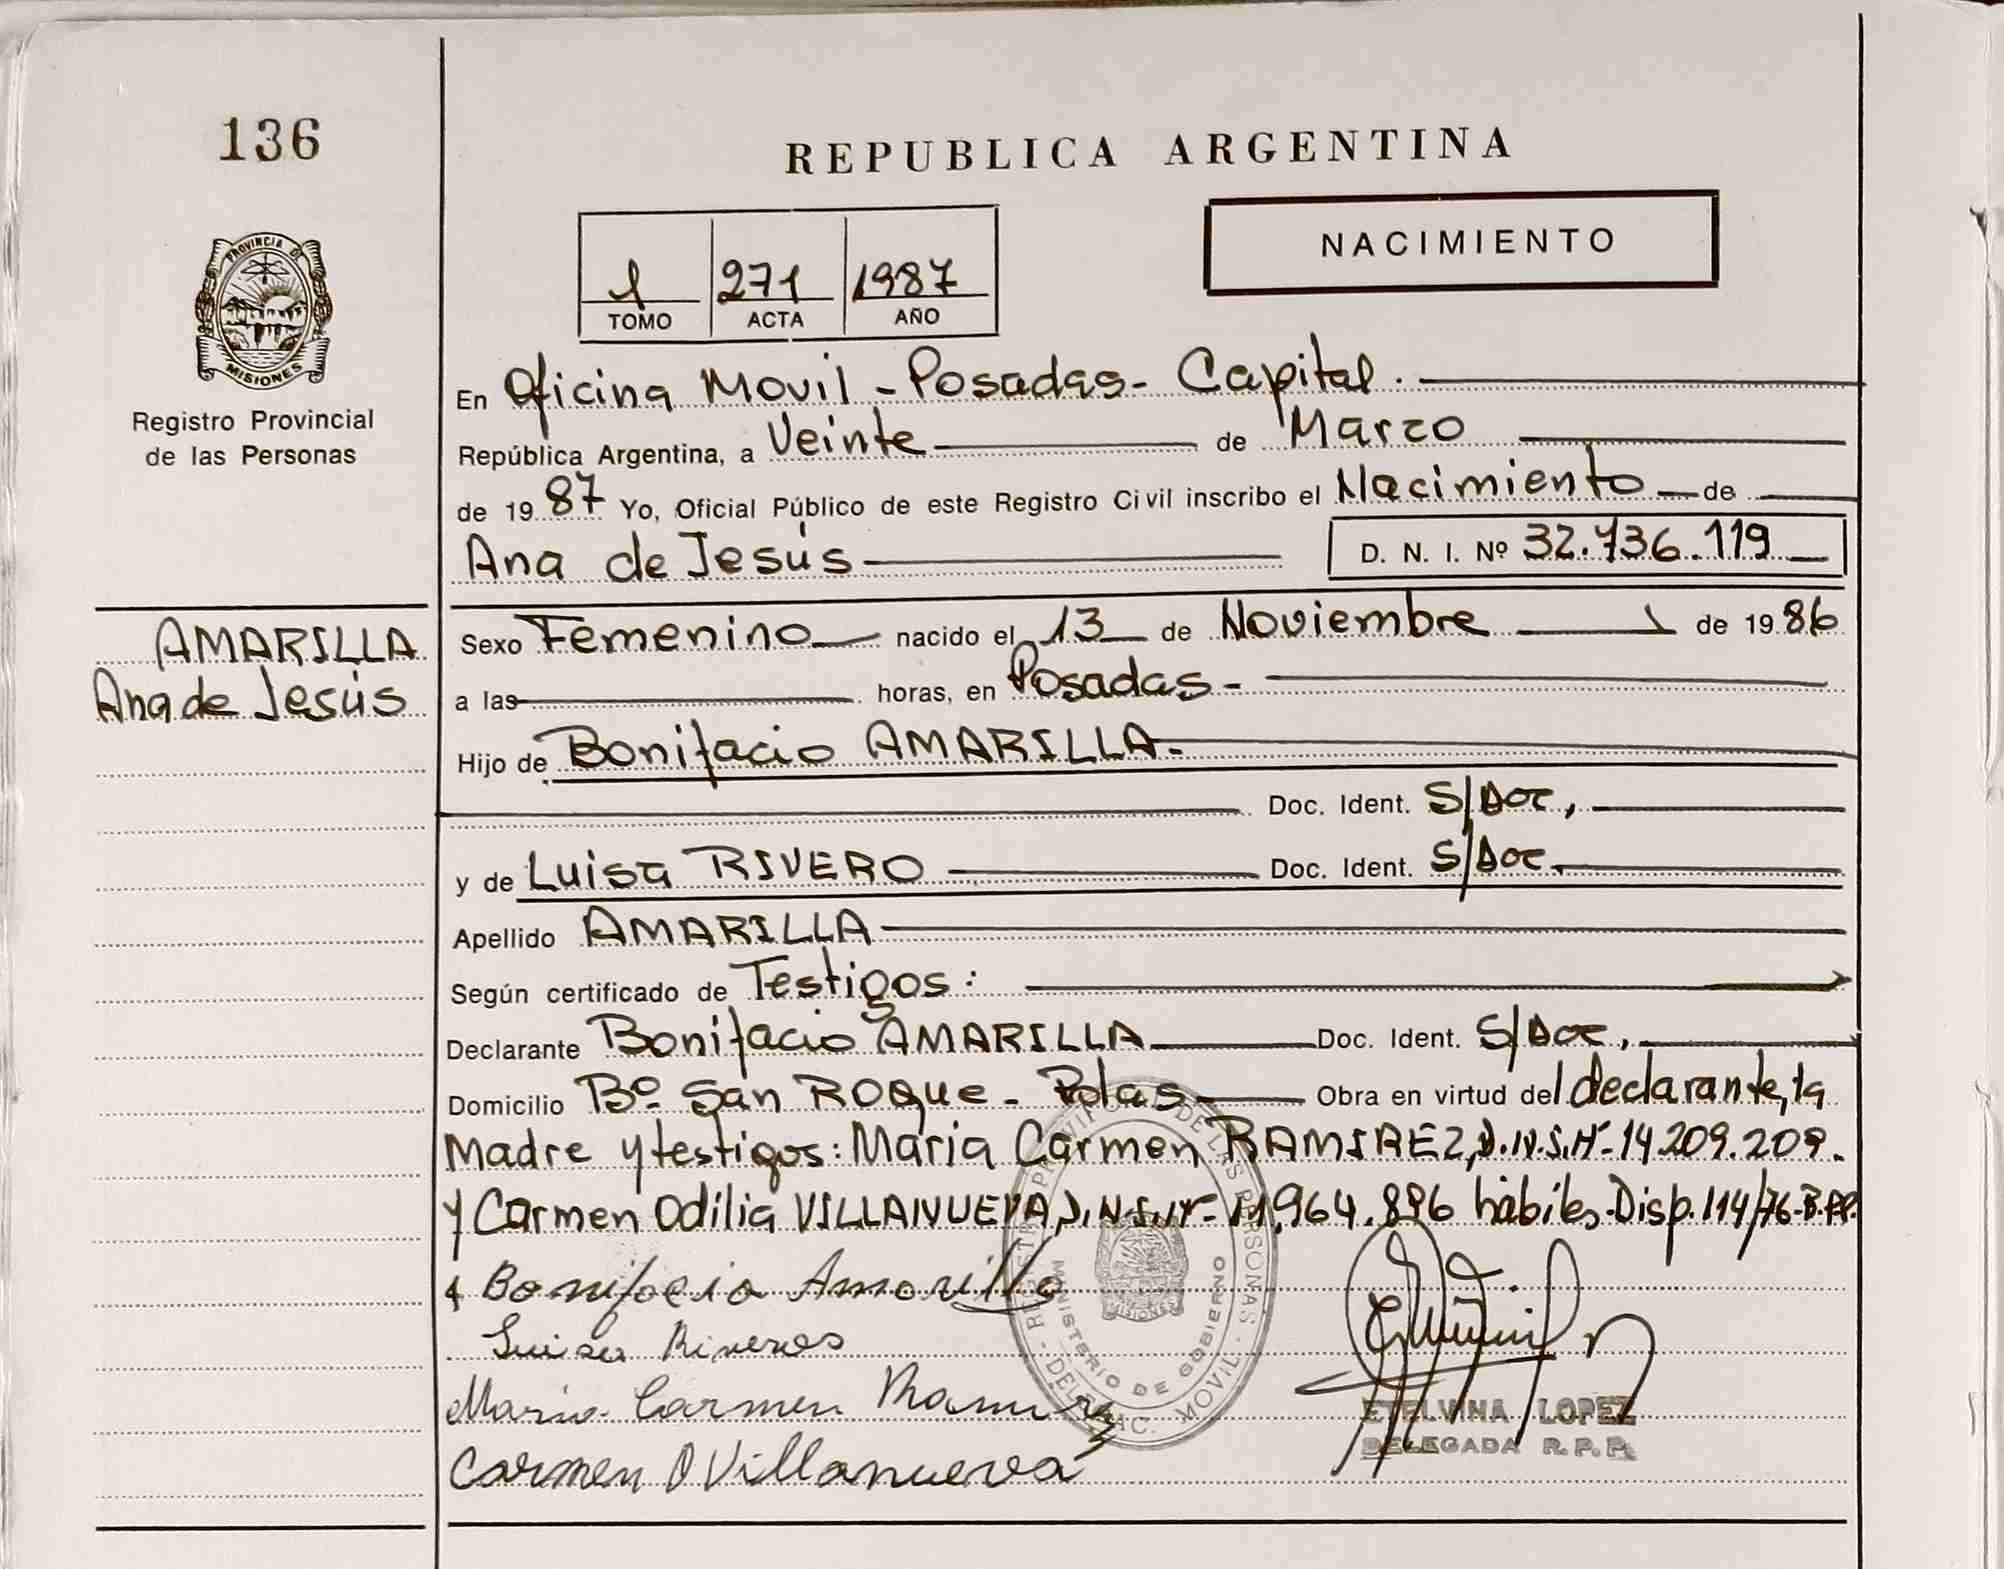 136
REPUBLICA ARGENTINA
NACIMIENTO
1 271 1987
TOMO ACTA AÑO
PROVINCIA DE
MISIONES
Registro Provincial
de las Personas
En Oficina Movil - Posadas - Capital.
República Argentina, a Veinte de Marzo
de 1987 Yo, Oficial Público de este Registro Civil inscribo el Nacimiento de
Ana de Jesús D. N. I. Nº 32.736.119
AMARILLA
Ana de Jesús
Sexo Femenino nacido el 13 de Noviembre de 1986
a las horas, en Posadas -
Hijo de Bonifacio AMARILLA.-
Doc. Ident. S/Doc,
y de Luisa RIVERO Doc. Ident. S/Doc.
Apellido AMARILLA
Según certificado de Testigos:
Declarante Bonifacio AMARILLA Doc. Ident. S/Doc,
Domicilio Bº San Roque - Pdas Obra en virtud del declarante, la
Madre y testigos: Maria Carmen RAMIREZ, D.N.I.Nº- 14.209.209.
Y Carmen Odilia VILLANUEVA, D.N.I.Nº- 11.964.896 hábiles-Disp.114/76-
Bonifacio Amarilla
Luisa Riveros
Maria Carmen Ramirez
Carmen O Villanueva
REGISTRO PROVINCIAL DE LAS PERSONAS
MINISTERIO DE GOBIERNO
MISIONES
DELEGAC. MOVIL
ETELVINA LOPEZ
DELEGADA R. P. P.